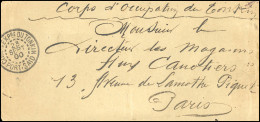 Corps d'Occupation du Tonkin
Monsieur le
Directeur des Magasins
Aux
13, Avenue de Lamotte Piquet
Paris